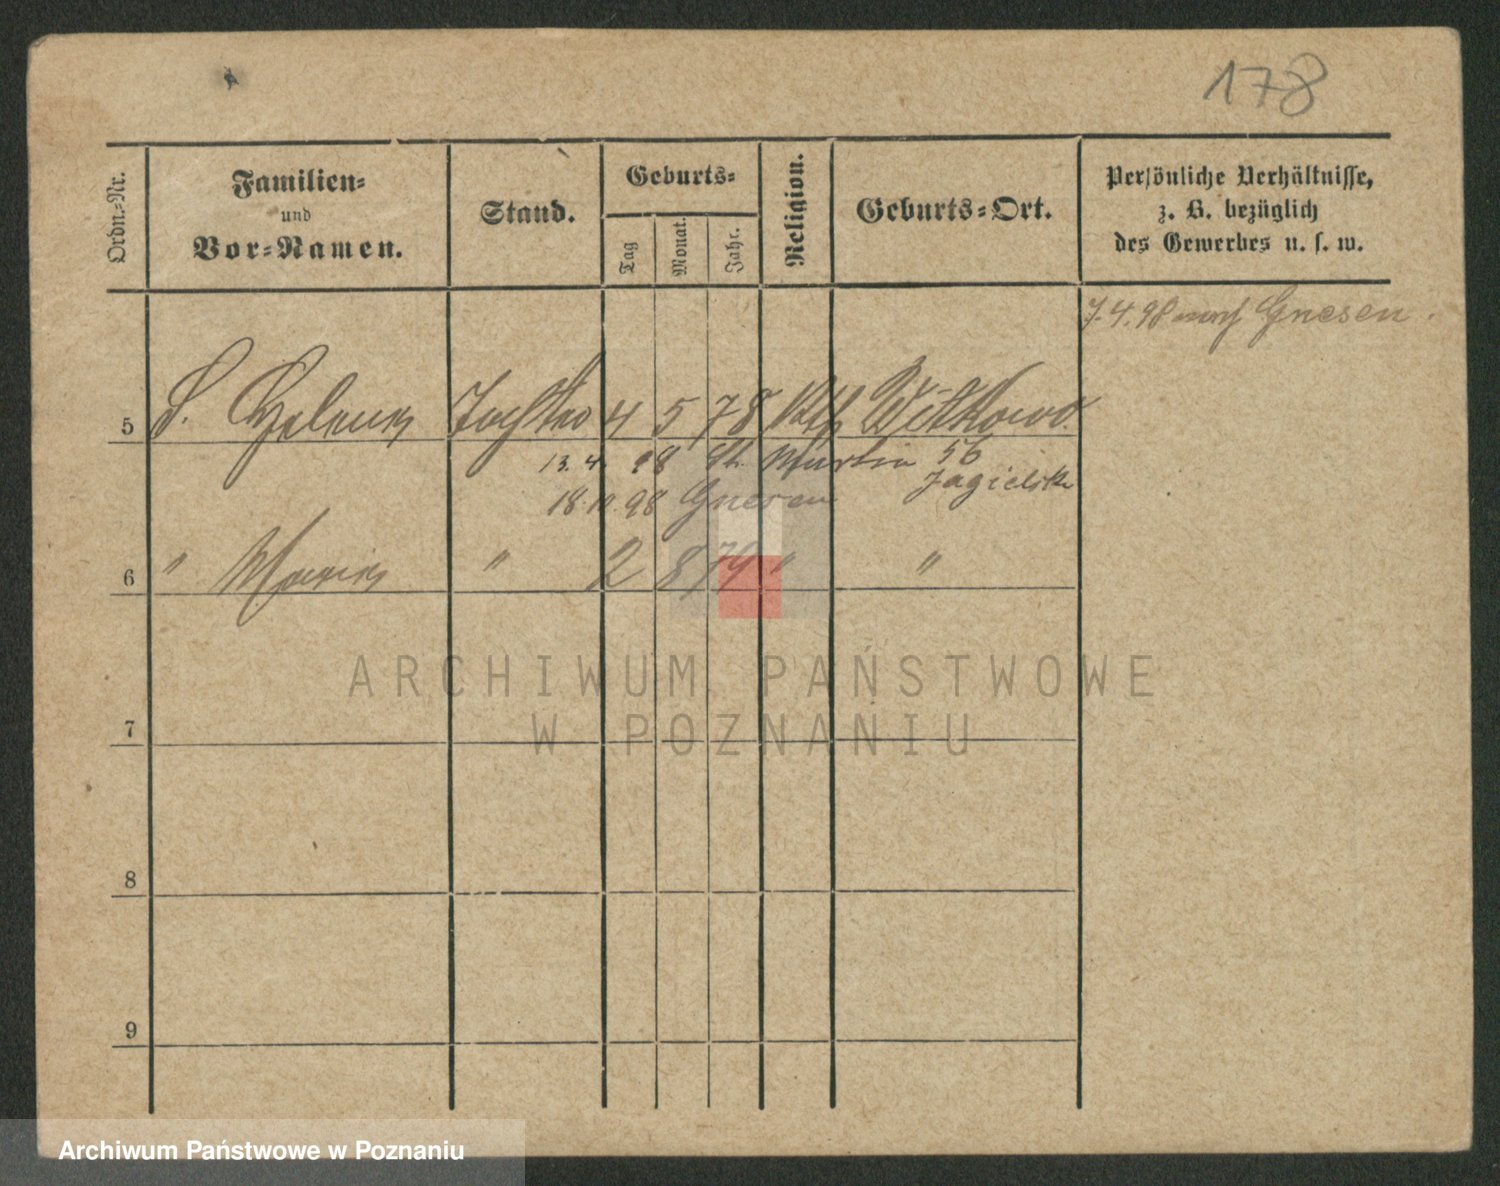 178
Ordn.=Nr.
Familien=
und
Vor=Namen.
Stand.
Geburts=
Tag
Monat.
Jahr.
Religion.
Geburts=Ort.
Persönliche Verhältnisse,
z. B. bezüglich
des Gewerbes u. s. w.
7.4.98 nach Gnesen.
5 S. Helena Tochter 4 5 78 Kth Witkowo
13.4. 98 St. Martin 56
Jagielska
18.10.98 Gnesen
6 " Maria " 2 8 79 " "
7
8
9
ARCHIWUM PAŃSTWOWE
W POZNANIU
Archiwum Państwowe w Poznaniu